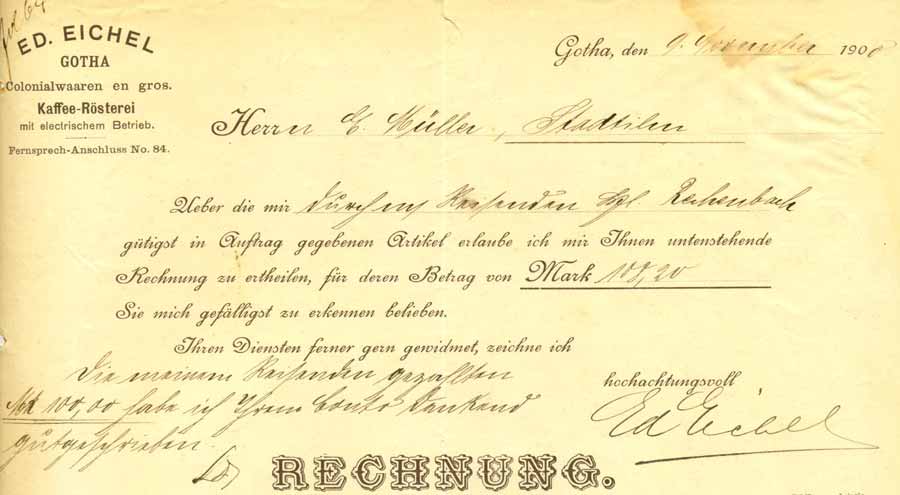 ED. EICHEL
GOTHA
Colonialwaaren en gros.
Kaffee-Rösterei
mit electrischem Betrieb.
Fernsprech-Anschluss No. 84.
Gotha, den 9. November 1908
Herrn E. Müller, Stadtilm
Ueber die mir durch m Reisenden
gütigst in Auftrag gegebenen Artikel erlaube ich mir Ihnen untenstehende
Rechnung zu ertheilen, für deren Betrag von Mark 108,20
Sie mich gefälligst zu erkennen belieben.
Ihren Diensten ferner gern gewidmet, zeichne ich
hochachtungsvoll
Ed Eichel
Die meinem Reisenden gezahlten
Mk 100,00 habe ich Ihrem Conto dankend
gutgeschrieben.
RECHNUNG.